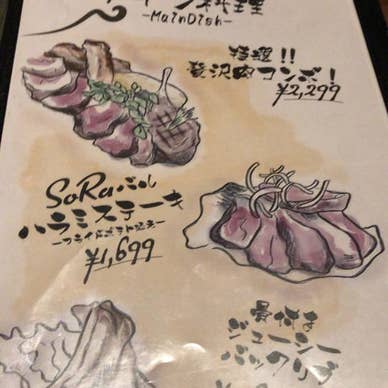 メイン料理
-MainDish-
特選!!
贅沢肉コンボ!
¥2,299
SoRaバル
ハラミステーキ
¥1,699
骨付き
ジューシー
バックリブ